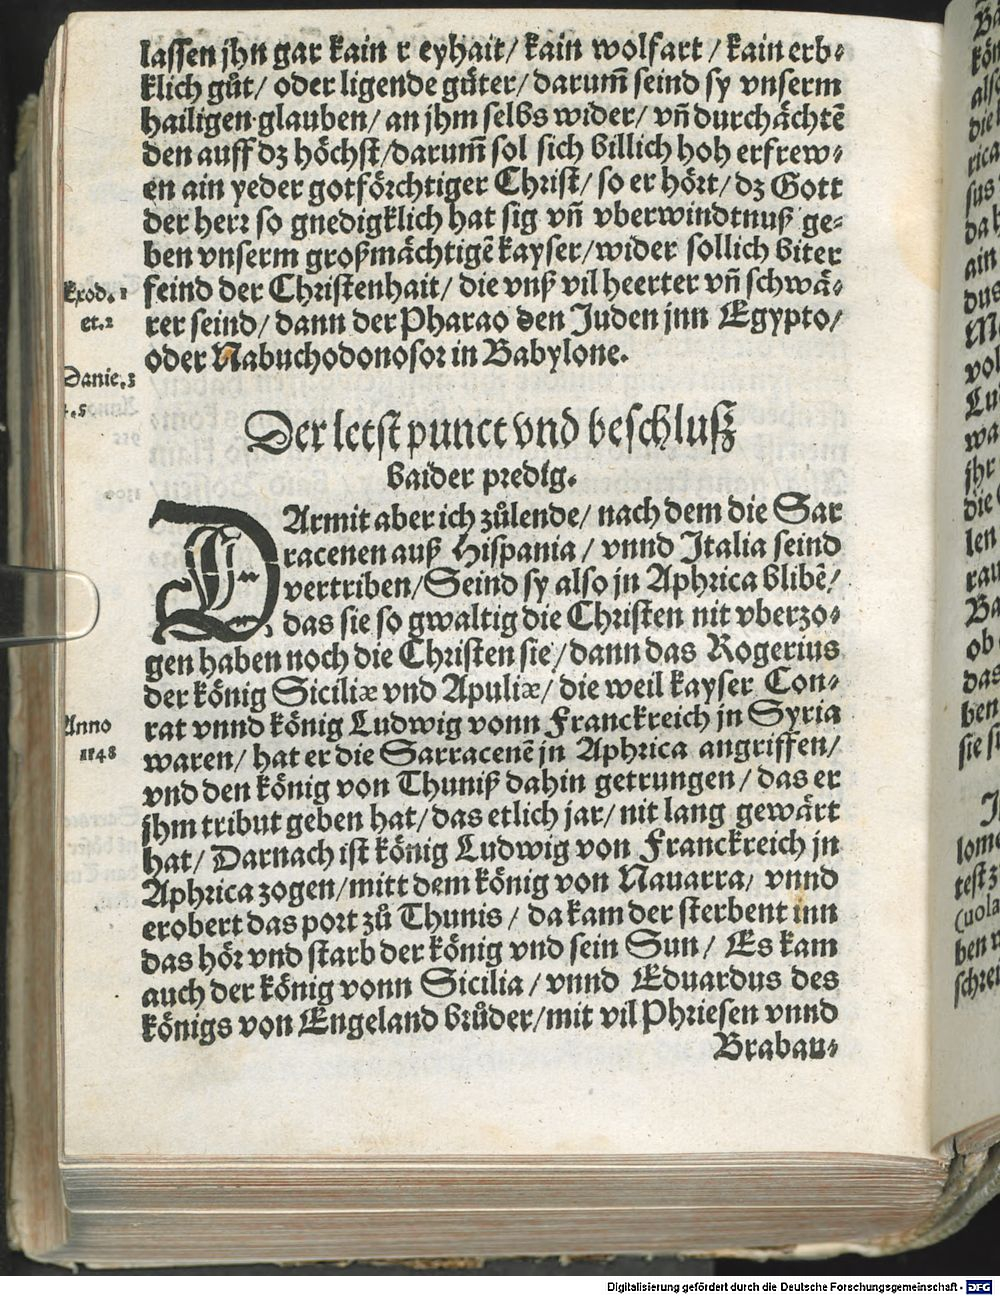 lassen jhn gar kain r eyhait/ kain wolfart / kain erb⸗
klich gůt/ oder ligende gůter/ darum̃ seind sy vnserm
hailigen glauben/ an jhm selbs wider/ vñ durchåchtẽ
den auff dz höchst/darum̃ sol sich billich hoh erfrew⸗
en ain yeder gotförchtiger Christ/ so er hört/ dz Gott
der herr so gnedigklich hat sig vñ vberwindtnuß ge⸗
ben vnserm großmåchtigẽ kayser/wider sollich biter
Exod. 1 feind der Christenhait/ die vnß vil heerter vñ schwå⸗
et.2 rer seind/ dann der Pharao den Juden jnn Egypto/
oder Nabuchodonosor in Babylone.
Danie.3
4.5
Der letst punct vnd beschluß
baider predig.
DArmit aber ich zůlende/ nach dem die Sar
racenen auß Hispania / vnnd Italia seind
vertriben/Seind sy also jn Aphrica blibẽ/
das sie so gwaltig die Christen nit vberzo⸗
gen haben noch die Christen sie/dann das Rogerius
der könig Siciliæ vnd Apuliæ/ die weil kayser Con⸗
Anno rat vnnd könig Ludwig vonn Franckreich jn Syria
1148 waren/ hat er die Sarracenẽ jn Aphrica angriffen/
vnd den könig von Thuniß dahin getrungen/ das er
jhm tribut geben hat/das etlich jar/ nit lang gewårt
hat/ Darnach ist könig Ludwig von Franckreich jn
Aphrica zogen/mitt dem könig von Nauarra/ vnnd
erobert das port zů Thunis / da kam der sterbent inn
das hör vnd starb der könig vnd sein Sun/ Es kam
auch der könig vonn Sicilia / vnnd Eduardus des
königs von Engeland brůder/mit vil Phriesen vnnd
Brabau⸗
Digitalisierung gefördert durch die Deutsche Forschungsgemeinschaft - DFG